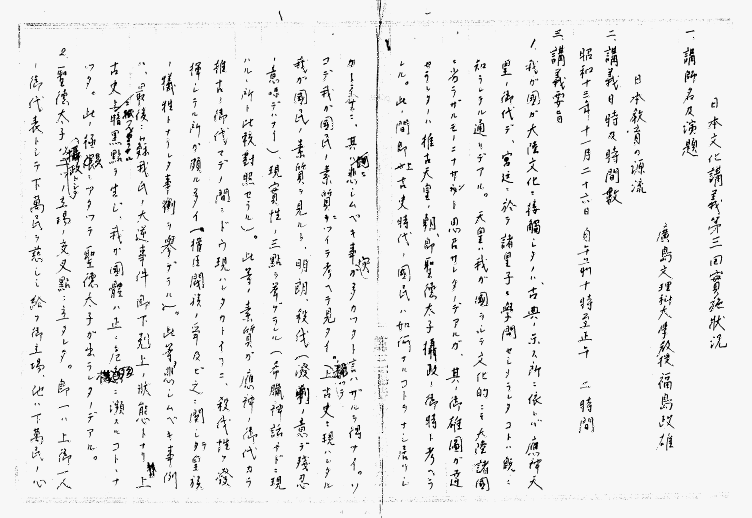 日本文化講義第三回實施狀況
一、講師名及演題
廣島文理科大學教授 福島政雄
日本教育の源流
二、講義日時及時間數
昭和十三年十一月二十六日 自午前十時至正午 二時間
三、講義要旨
1、我が國が大陸文化ニ接觸シタノハ、古典ノ示ス所ニ依レバ應神天
皇ノ御代デ、宮廷ニ於テ諸皇子ニ學問セシメラレタコトハ既ニ
知ラレタル通リデアル。天皇ハ我が國ヲシテ文化的ニモ大陸諸國
ニ劣ラザルモノニナサント思召サレタノデアルガ、其ノ御雄圖ガ達
セラレタノハ推古天皇ノ朝、即聖徳太子攝政ノ御時ト考ヘラ
レル。此ノ間即上古史時代ノ國民ハ如何ナルコトヲナシ居リシ
カト云フニ、其間ニ悲シムベキ事ガ多カツタト言ハザルヲ得ナイ。ソ
コデ我が國民ノ素質ニツイテ考ヘテ見タイ。上古史ニ現ハレタル
我が國民ノ素質ヲ見ルニ、明朗、殺伐(潑剌ノ意デ殘忍
ノ意味デハナイ)現實性ノ三點ヲ擧ゲラル(希臘神話ナドニ現
ハルル所ト比較對照セラル)。此等ノ素質ガ應神ノ御代カラ
推古ノ御代マデノ間ニドウ現ハレタカトイフニ、殺伐性ヲ發
揮シタル所ガ頗ル多イ(權臣閥族ノ爭及ビ之ニ關シテ皇族
ノ犧牲トナラレタ事例ヲ擧ゲラル)。此等悲シムベキ事例
ハ、最後ニ蘇我氏ノ大逆事件即下剋上ノ狀態トナリ、上
古史ニ暗黑點ヲ生ジ、我が國體ハ正ニ危機ニ瀕スルコトトナ
ツタ。此ノ極ニアタツテ聖徳太子ガ出ラレタノデアル。
2、聖徳太子ハ攝政トシテ立場ノ交叉點ニ立タレタ。即一ハ上御一人
ノ御代表トシテ下萬民ヲ慈シミ給フ御立場、他ハ下萬民ノ心